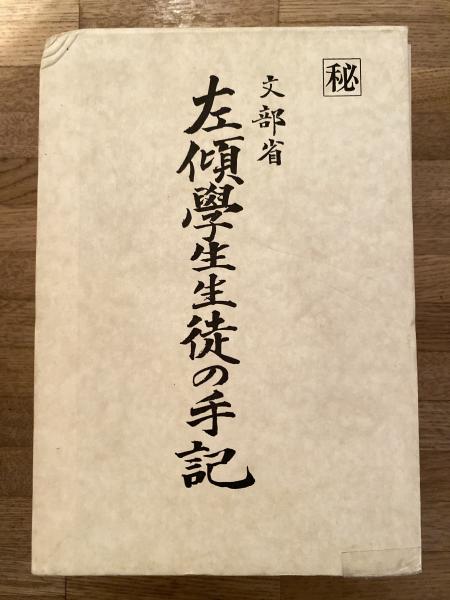 秘
文部省
左傾學生生徒の手記